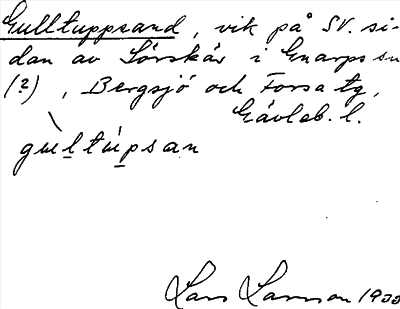 Gulltuppsand, vik på SV. si-
dan av Sörskär i Gnarps sn
(?), Bergsjö och Forsa tg,
Gävleb. l.
gùltúpsan
Lars Larsson 1933